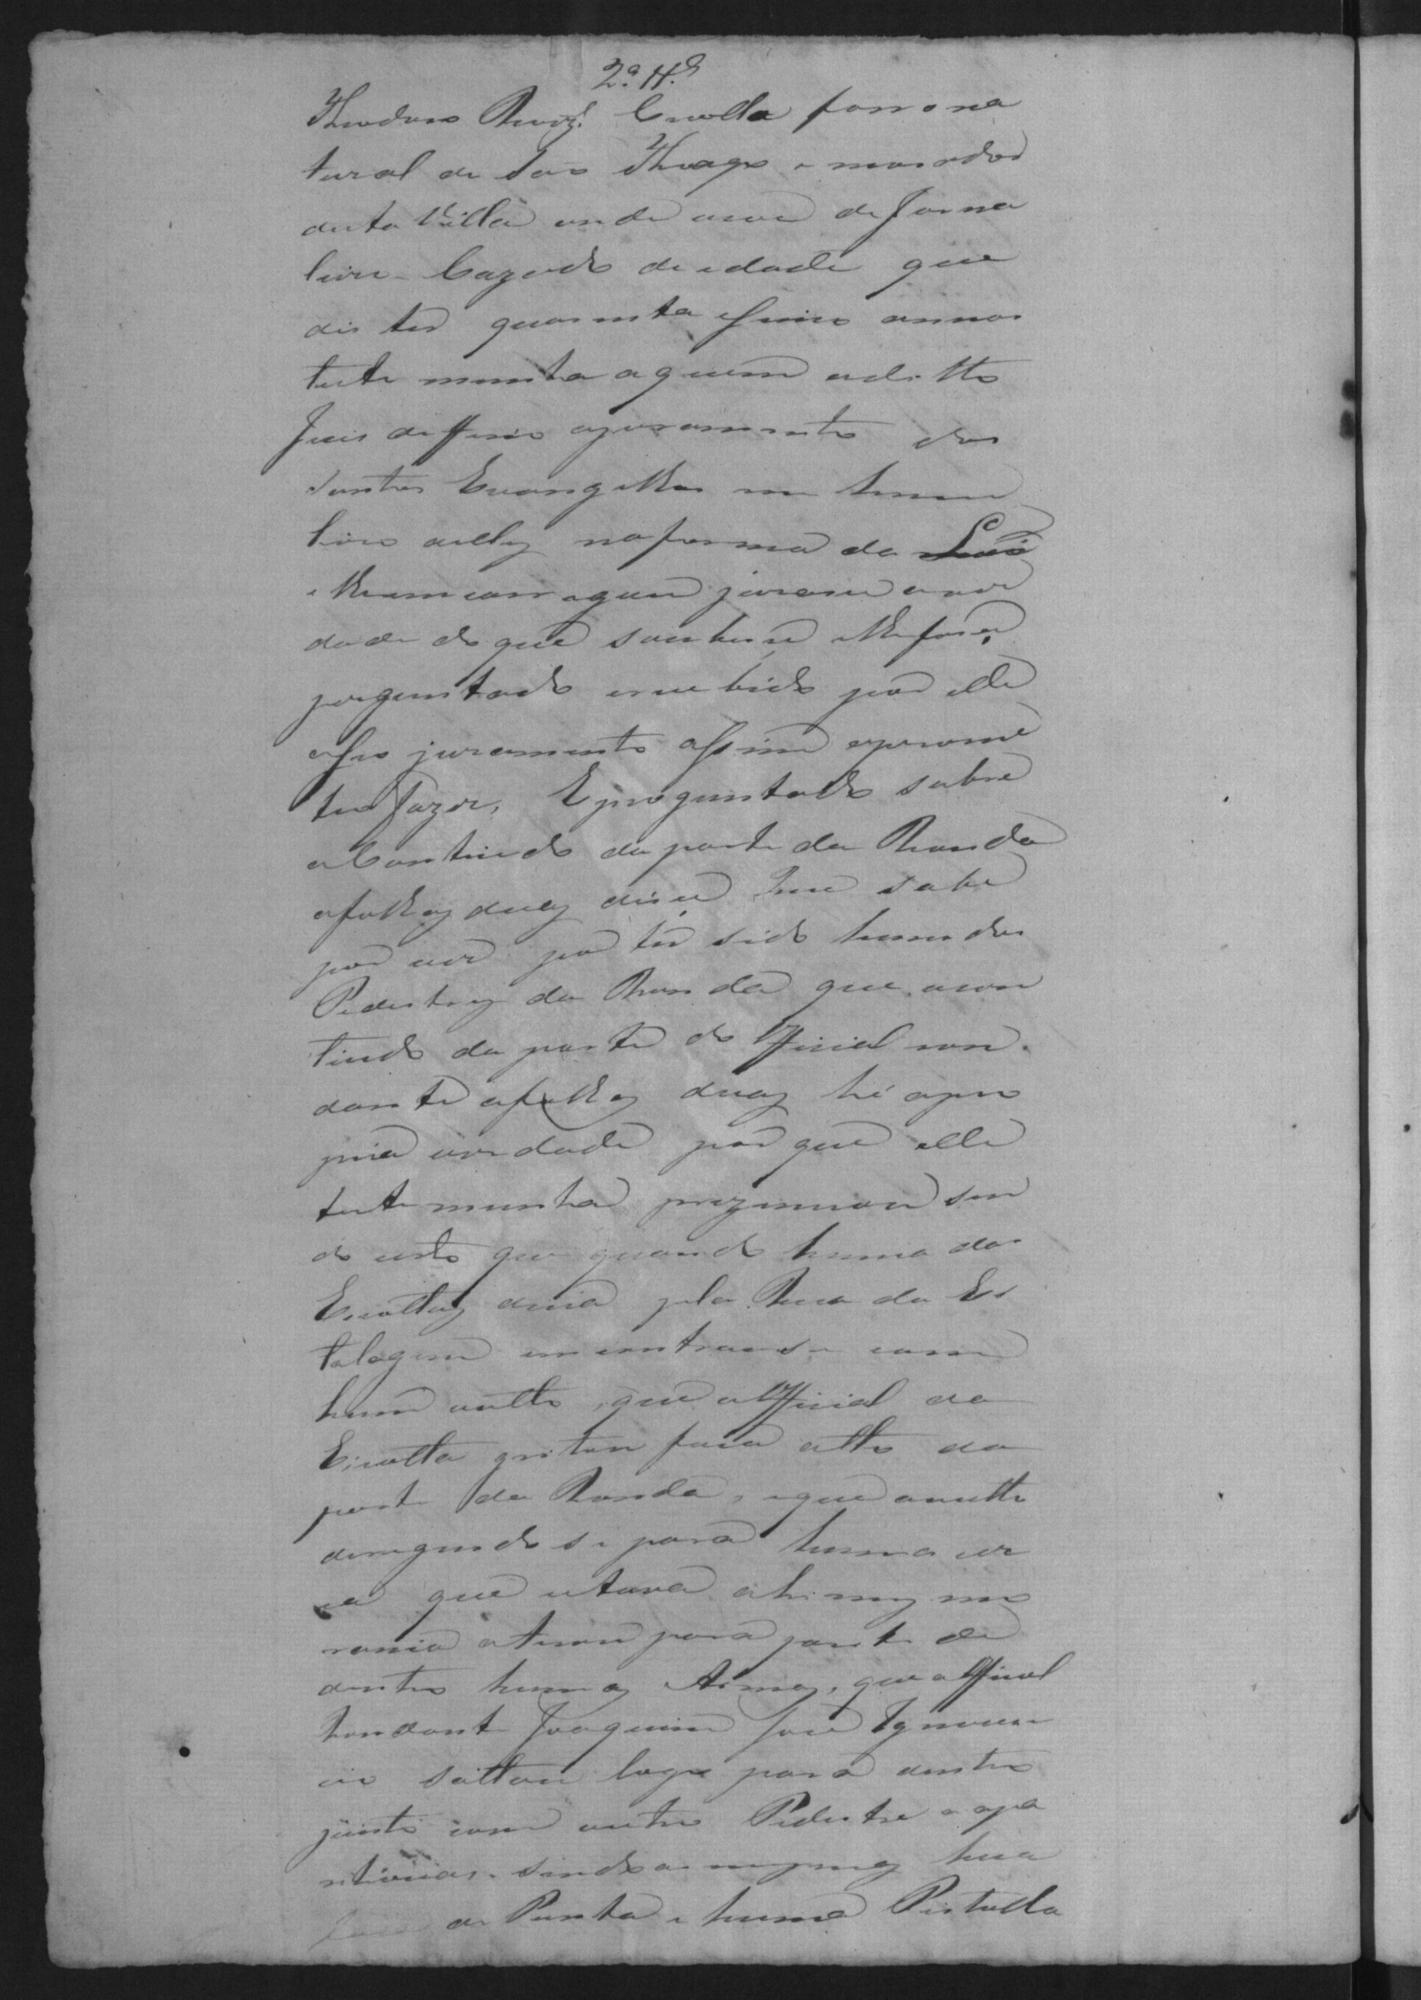 2.ª tt.ª
Theodoro Roiz. Crioullo forro na
tural de São Thiago e morador
desta Villa onde vive de Jorna
leiro Cazado de edade que
dis ter quarenta e sinco annos
teste munha a quem o ditto
Juis deffirio o juramento dos
Santos Evangelhos em hum
livro delles na forma da Lei
e lhe emcarregou jurasse a ver
dade do que soubesse e lhe fosse
perguntado e recebido por elle
esse juramento assim o prome
teo fazer, E preguntado sobre
o Contiudo da parte da Ronda
a folhas duas disse Que sabe
por ver por ter sido hum dos
Pedestres da Ronda que o con
tiudo da parte do Official ron
dante a folhas duas hé a pro
pria verdade por que elle
teste munha prezenciou sen
do certo que quando huma das
Escoltas decia pela Rua da Es
talagem encontrouse com
hum vulto, que o Official da
Escolta gritou faça alto da
parte da Ronda, e que o vulto
deregindo se para huma cer
ca que estava ahi nas me
atirou para parte de
dentro humas Armas, que o Official
Rondante Joaquim José Ignocen
cio saltou logo para dentro
junto com outro Pedestre e apa
nharão sendo as mesmas hua
de Ponta e huma Pistolla